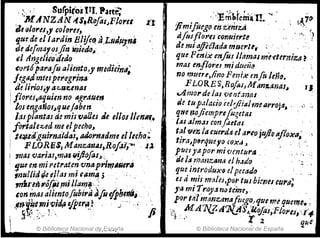 Suspiros III. Parte,
MANZANAS, Rosas, Flores 11
de olores, y colores,
que de el Iardin Eliseo à Luduyna
de desmayos sin miedo,
el Angelico dedo
cortò para su aliento, y medicina,
de lirios, y
flores, a quien no agrauen
los engaños, que saben
las plantas de mis valles de ellos llenas,
fortaleced me el pecho,
adornadme el lecho.
FLORES, Manzanas, Rosas, 12
mas varias, mas vistosas,
que en mi retrato en vna primauera
mullid de ellas mi cama
con mas aliento
espera?
fi
Emblema II. 170
si mi fuego en
a sus flores conuierte
de mi affectada muerte,
que Fenix en sus llamas me eterniza?
mas en flores mi dueño
no muere, sino Fenix en su leño.
FLORES, Rosas, Manzanas, 13
Amor de las ventanas
de tu palacio celestial me arroja,
que no siempre sugetas
las almas con saetas
tal vez la cuerda el arco
tira, porque yo coxa,
pues ya por mi ventura
de la manzana el hado
que introduxo el pecado
es á mis males, por tus bienes cura,
ya mi Troya no teme,
por tal manzana fuego, que me queme.
MANZANAS, Rosas, Flores, 14
Y 2 que
© Biblioteca Nacional de España
© Biblioteca Nacional de España